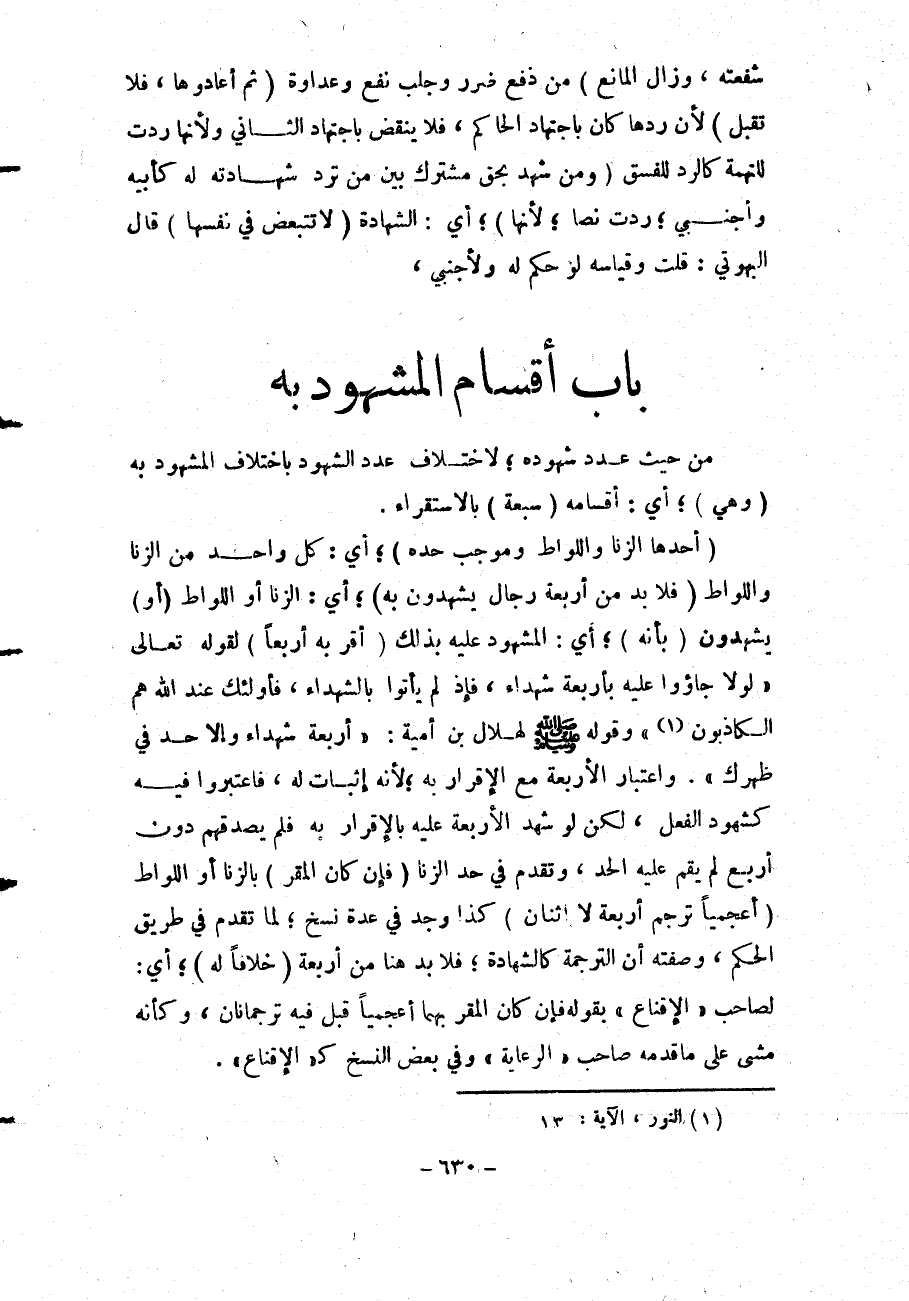 شفعته ، وزال المانع ) من دفع ضرر وجلب نفع وعداوة ( ثم أعادوها ، فلا
تقبل ) لأن ردها كان باجتهاد الحاكم ، فلا ينقض باجتهاد الثـــاني ولأنها ردت
للتهمة كالرد للفسق ( ومن شهد بحق مشترك بين من ترد شهــادته له كأبيه
وأجنــبي ؛ ردت نصا ؛ لأنها ) ؛ أي : الشهادة ( لاتتبعض في نفسها ) قال
البهوتي : قلت وقياسه لو حكم له ولأجنبي ،
باب أقسام المشهود به
من حيث عـدد شهوده ؛ لاختـلاف عدد الشهود باختلاف المشهود به
( وهي ) ؛ أي : أقسامه ( سبعة ) بالاستقراء .
( أحدها الزنا واللواط وموجب حده ) ؛ أي : كل واحــد من الزنا
واللواط ( فلا بد من أربعة رجال يشهدون به) ؛ أي : الزنا أو اللواط (أو)
يشهدون ( بأنه ) ؛ أي : المشهود عليه بذلك ( أقر به أربعاً ) لقوله تعـالى
« لولا جاؤوا عليه بأربعة شهداء ، فإذ لم يأتوا بالشهداء ، فأولئك عند الله هم
الـكاذبون (١) » وقوله ﷺ لهـلال بن أمية : « أربعة شهداء وإلا حـد في
ظهرك » . واعتبار الأربعة مع الإقرار به ؛ لأنه إثبـات له ، فاعتبروا فيــه
كشهود الفعل ، لكن لو شهد الأربعة عليه بالإقرار به فلم يصدقهم دون
أربـع لم يقم عليه الحد ، وتقدم في حد الزنا ( فإن كان المقر ) بالزنا أو اللواط
( أعجمياً ترجم أربعة لا اثنان ) كذا وجد في عدة نسخ ؛ لما تقدم في طريق
الحكم ، وصفته أن الترجمة كالشهادة ؛ فلا بد هنا من أربعة ( خلافاً له ) ؛ أي :
لصاحب « الإقناع » بقوله فإن كان المقر بهما أعجمياً قبل فيه ترجمانان ، وكأنه
مشى على ماقدمه صاحب « الرعاية » وفي بعض النسخ كـ« الإقناع» .
(١) النور ، الآية : ١٣
- ٦٣٠ -